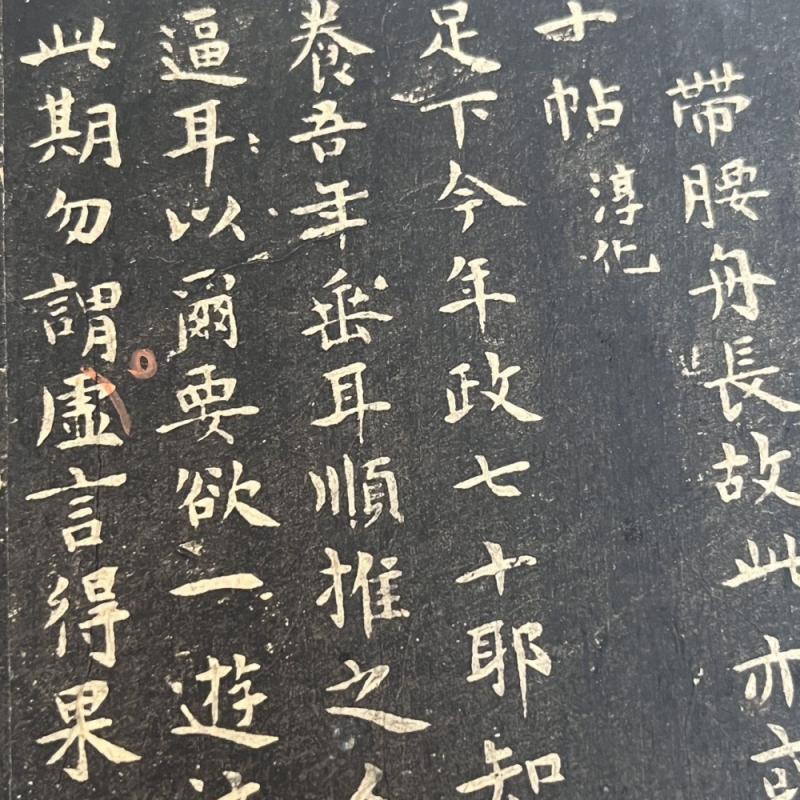 帶腰舟長故此亦或
十帖
淳化
足下今年政七十耶知
養吾年垂耳順推之人
逼耳以爾要欲一遊
此期勿謂虛言得果